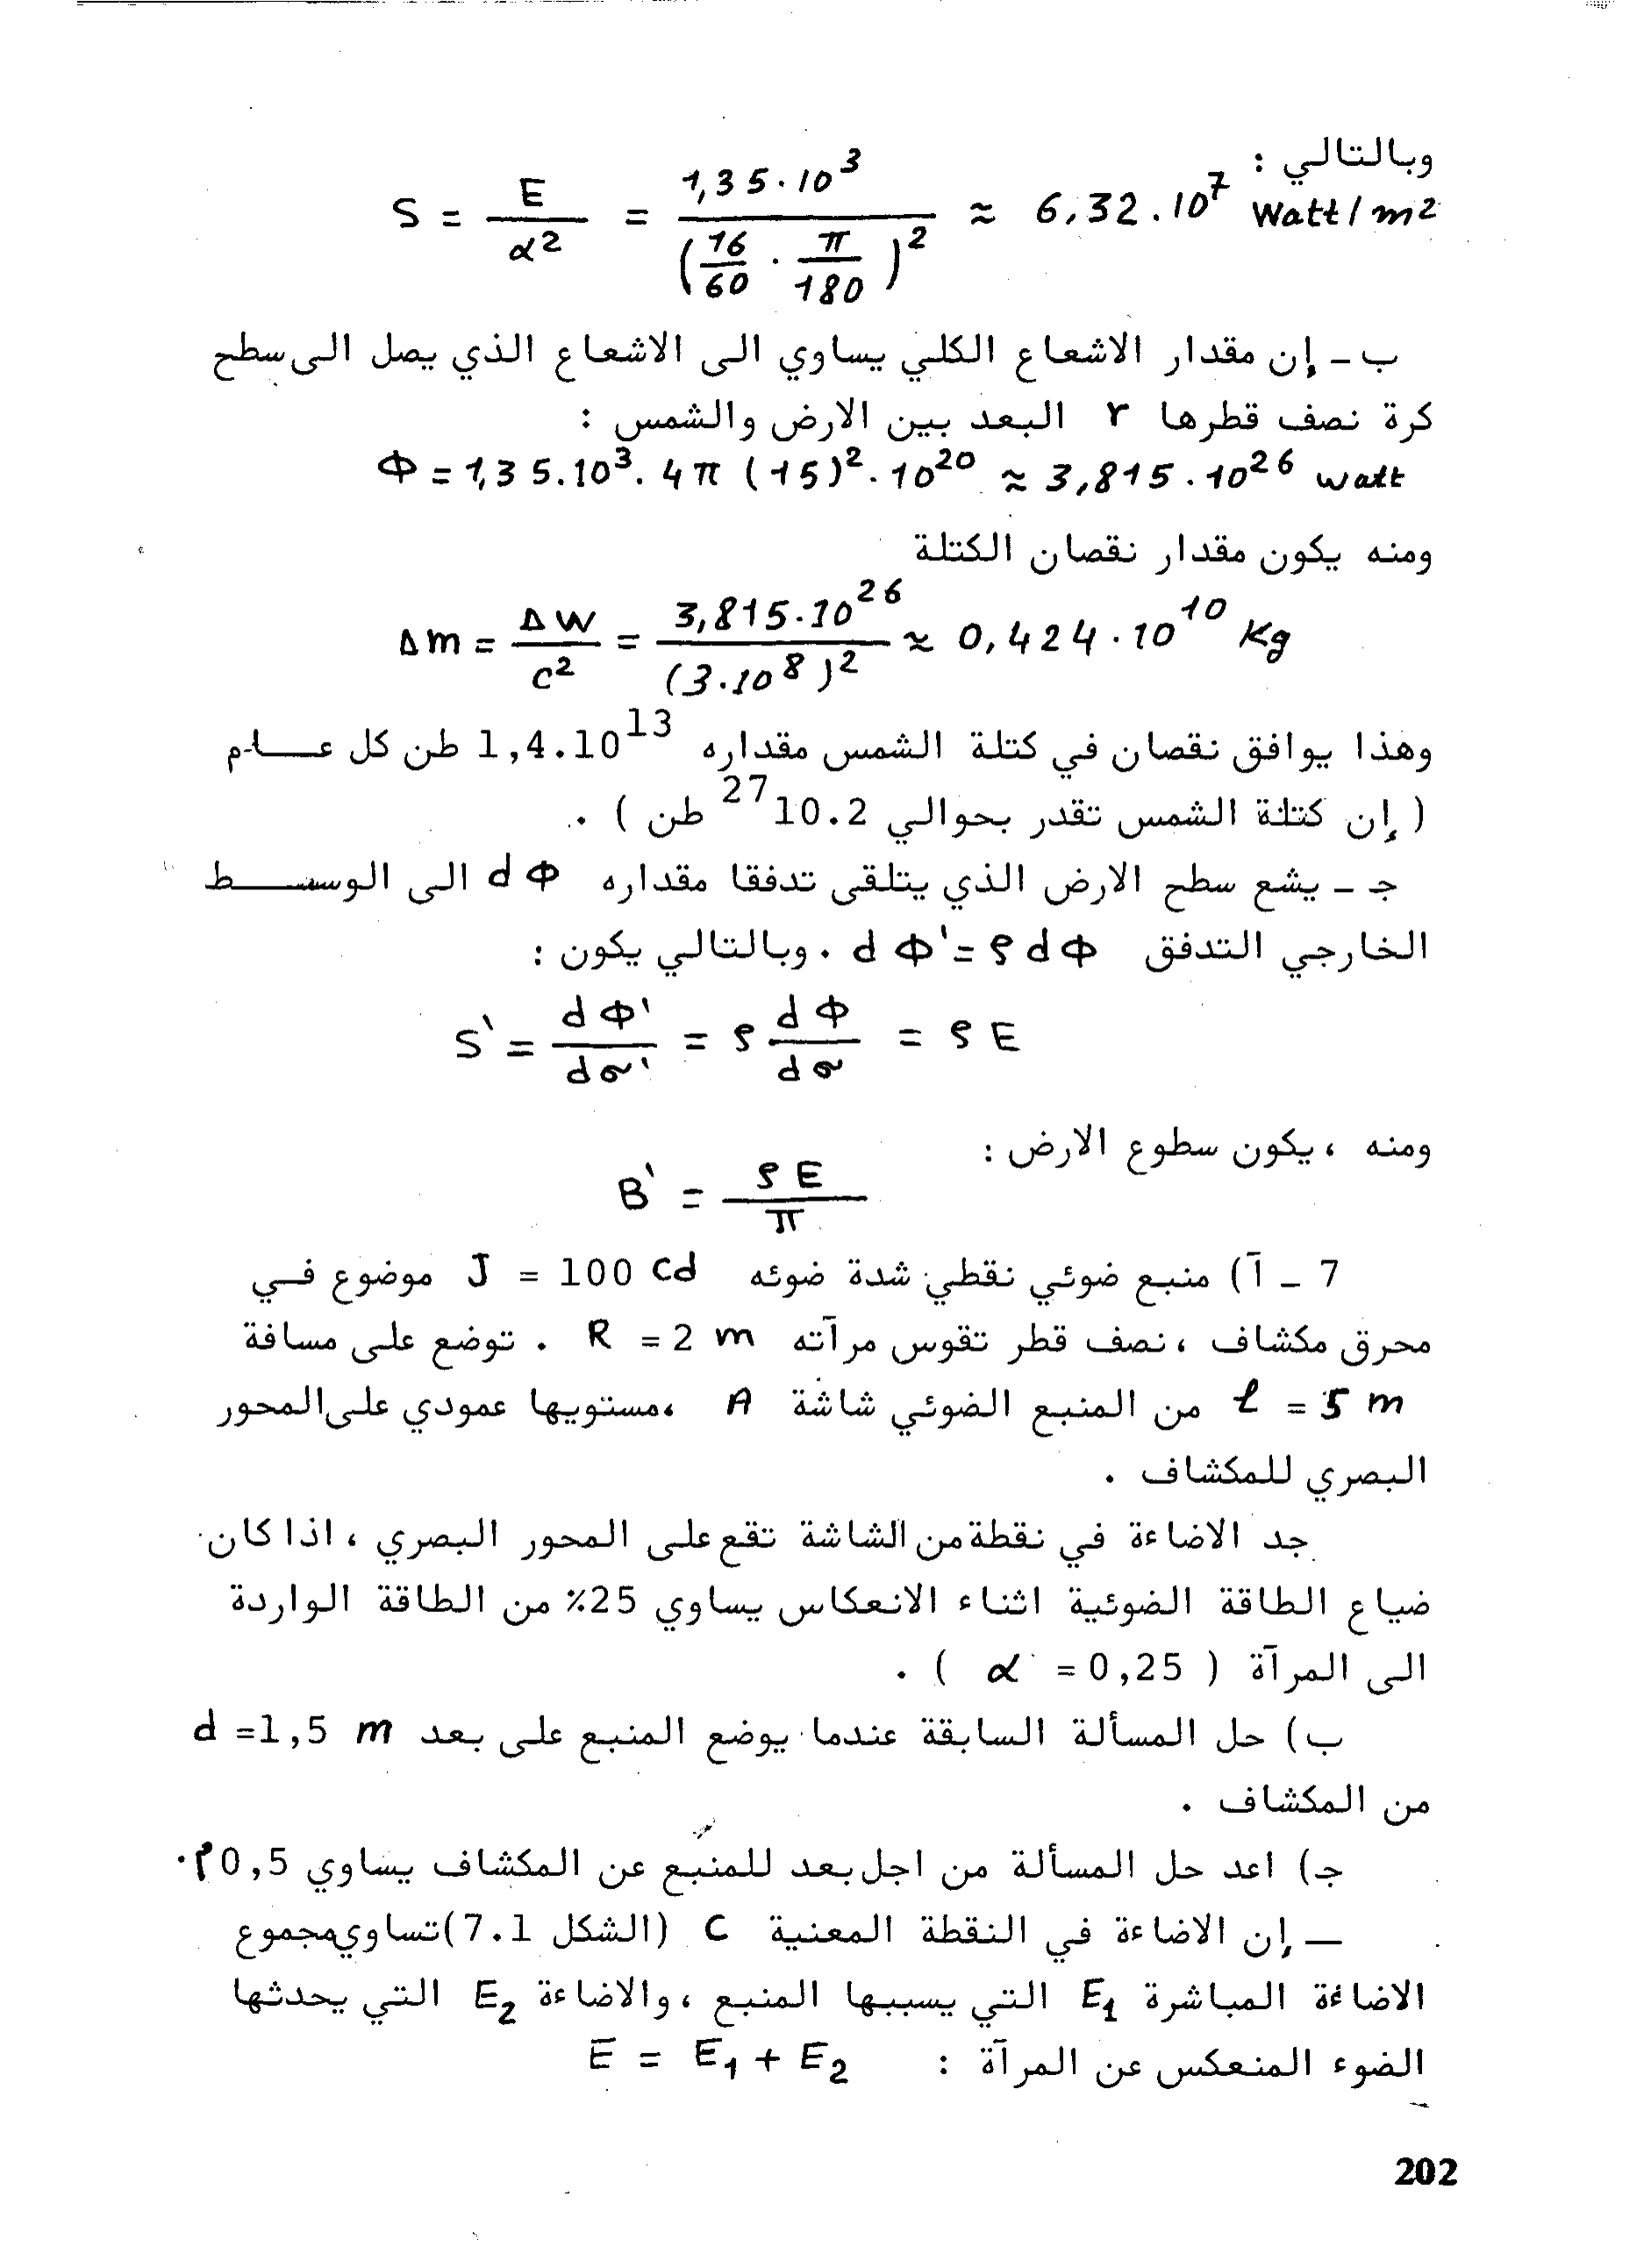 وبالتالي :
S = E / α² = 1,35.10³ / (16/60 . π/180)² ≈ 6,32.10⁷ Watt/m²
ب ـ إن مقدار الاشعاع الكلي يساوي الى الاشعاع الذي يصل الى سطح
كرة نصف قطرها r البعد بين الارض والشمس :
Φ = 1,35.10³. 4π (15)². 10²⁰ ≈ 3,815.10²⁶ watt
ومنه يكون مقدار نقصان الكتلة
Δm = ΔW / c² = 3,815.10²⁶ / (3.10⁸)² ≈ 0,424.10¹⁰ Kg
وهذا يوافق نقصان في كتلة الشمس مقداره 1,4.10¹³ طن كل عـــام
( إن كتلة الشمس تقدر بحوالي 10.2²⁷ طن ) .
جـ ـ يشع سطح الارض الذي يتلقى تدفقا مقداره dΦ الى الوســـط
الخارجي التدفق dΦ' = ρdΦ . وبالتالي يكون :
S' = dΦ' / dσ' = ρ dΦ / dσ = ρE
ومنه ، يكون سطوع الارض :
B' = ρE / π
7 ـ آ) منبع ضوئي نقطي شدة ضوئه J = 100 cd موضوع فــي
محرق مكشاف ، نصف قطر تقوس مرآته R = 2 m . توضع على مسافة
ℓ = 5 m من المنبع الضوئي شاشة A ،مستويها عمودي على المحور
البصري للمكشاف .
جد الاضاءة في نقطة من الشاشة تقع على المحور البصري ، اذا كان
ضياع الطاقة الضوئية اثناء الانعكاس يساوي 25٪ من الطاقة الواردة
الى المرآة ( α = 0,25 ) .
ب) حل المسألة السابقة عندما يوضع المنبع على بعد d =1,5 m
من المكشاف .
جـ) اعد حل المسألة من اجل بعد للمنبع عن المكشاف يساوي 0,5م.
— إن الاضاءة في النقطة المعنية C (الشكل 7.1) تساوي مجموع
الاضاءة المباشرة E₁ التي يسببها المنبع ، والاضاءة E₂ التي يحدثها
الضوء المنعكس عن المرآة : E = E₁ + E₂
202